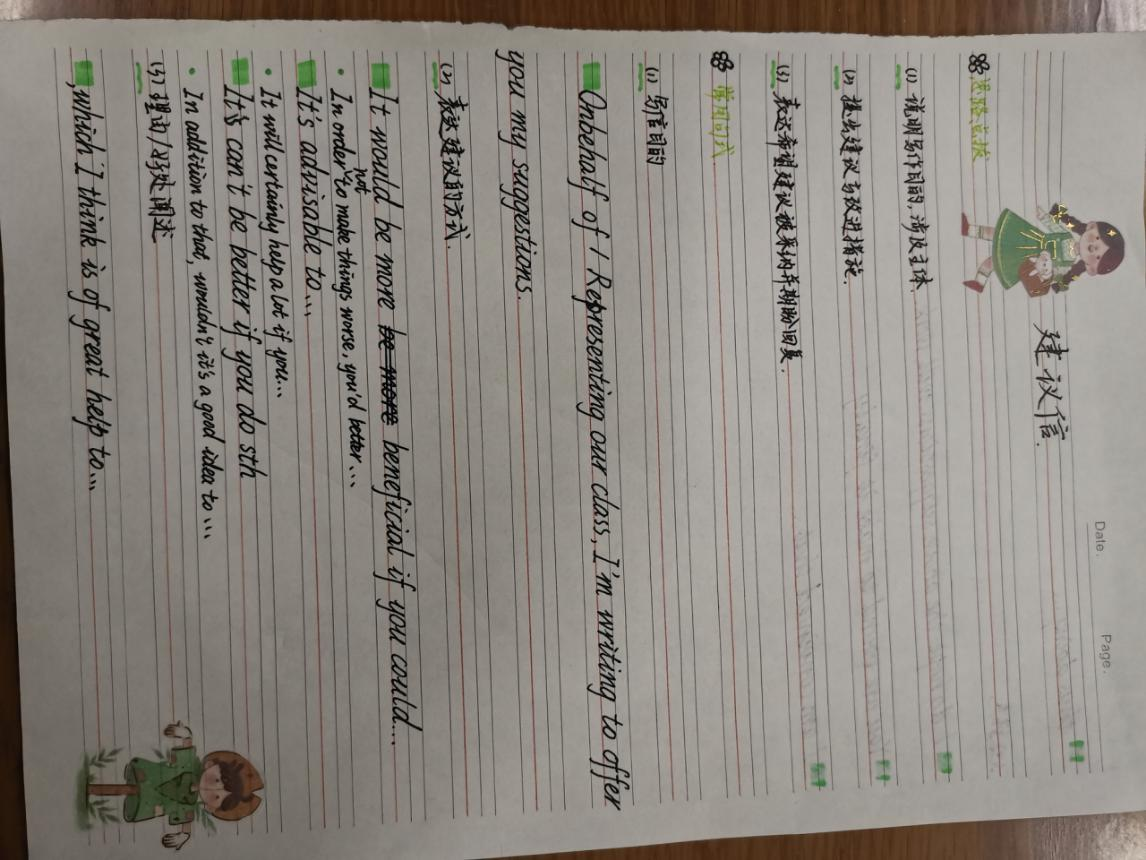 Date.
Page.
建议信.
思路点拨
(1) 说明写作目的,涉及主体.
(2) 提出建议与改进措施.
(3) 表达希望建议被采纳并期盼回复.
常用句式
(1) 写信目的
Onbehalf of / Representing our class, I'm writing to offer
you my suggestions.
(2) 表达建议的方式
It would be more be more beneficial if you could...
• In order not to make things worse, you'd better...
It's advisable to...
• It will certainly help a lot if you...
It's can't be better if you do sth
• In addition to that, wouldn't it's a good idea to...
(3) 理由/好处阐述
, which I think is of great help to...